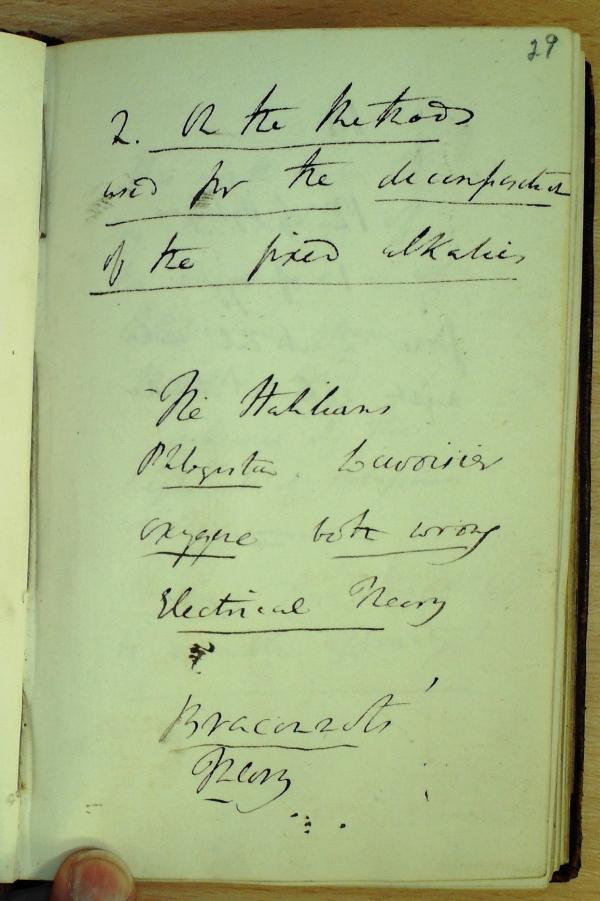 29
2. On the Methods
used for the decomposition
of the fixed alkalies
The Stahlians
Phlogiston. Lavoisier
oxygene both wrong
Electrical Theory
Braconnots'
Theory